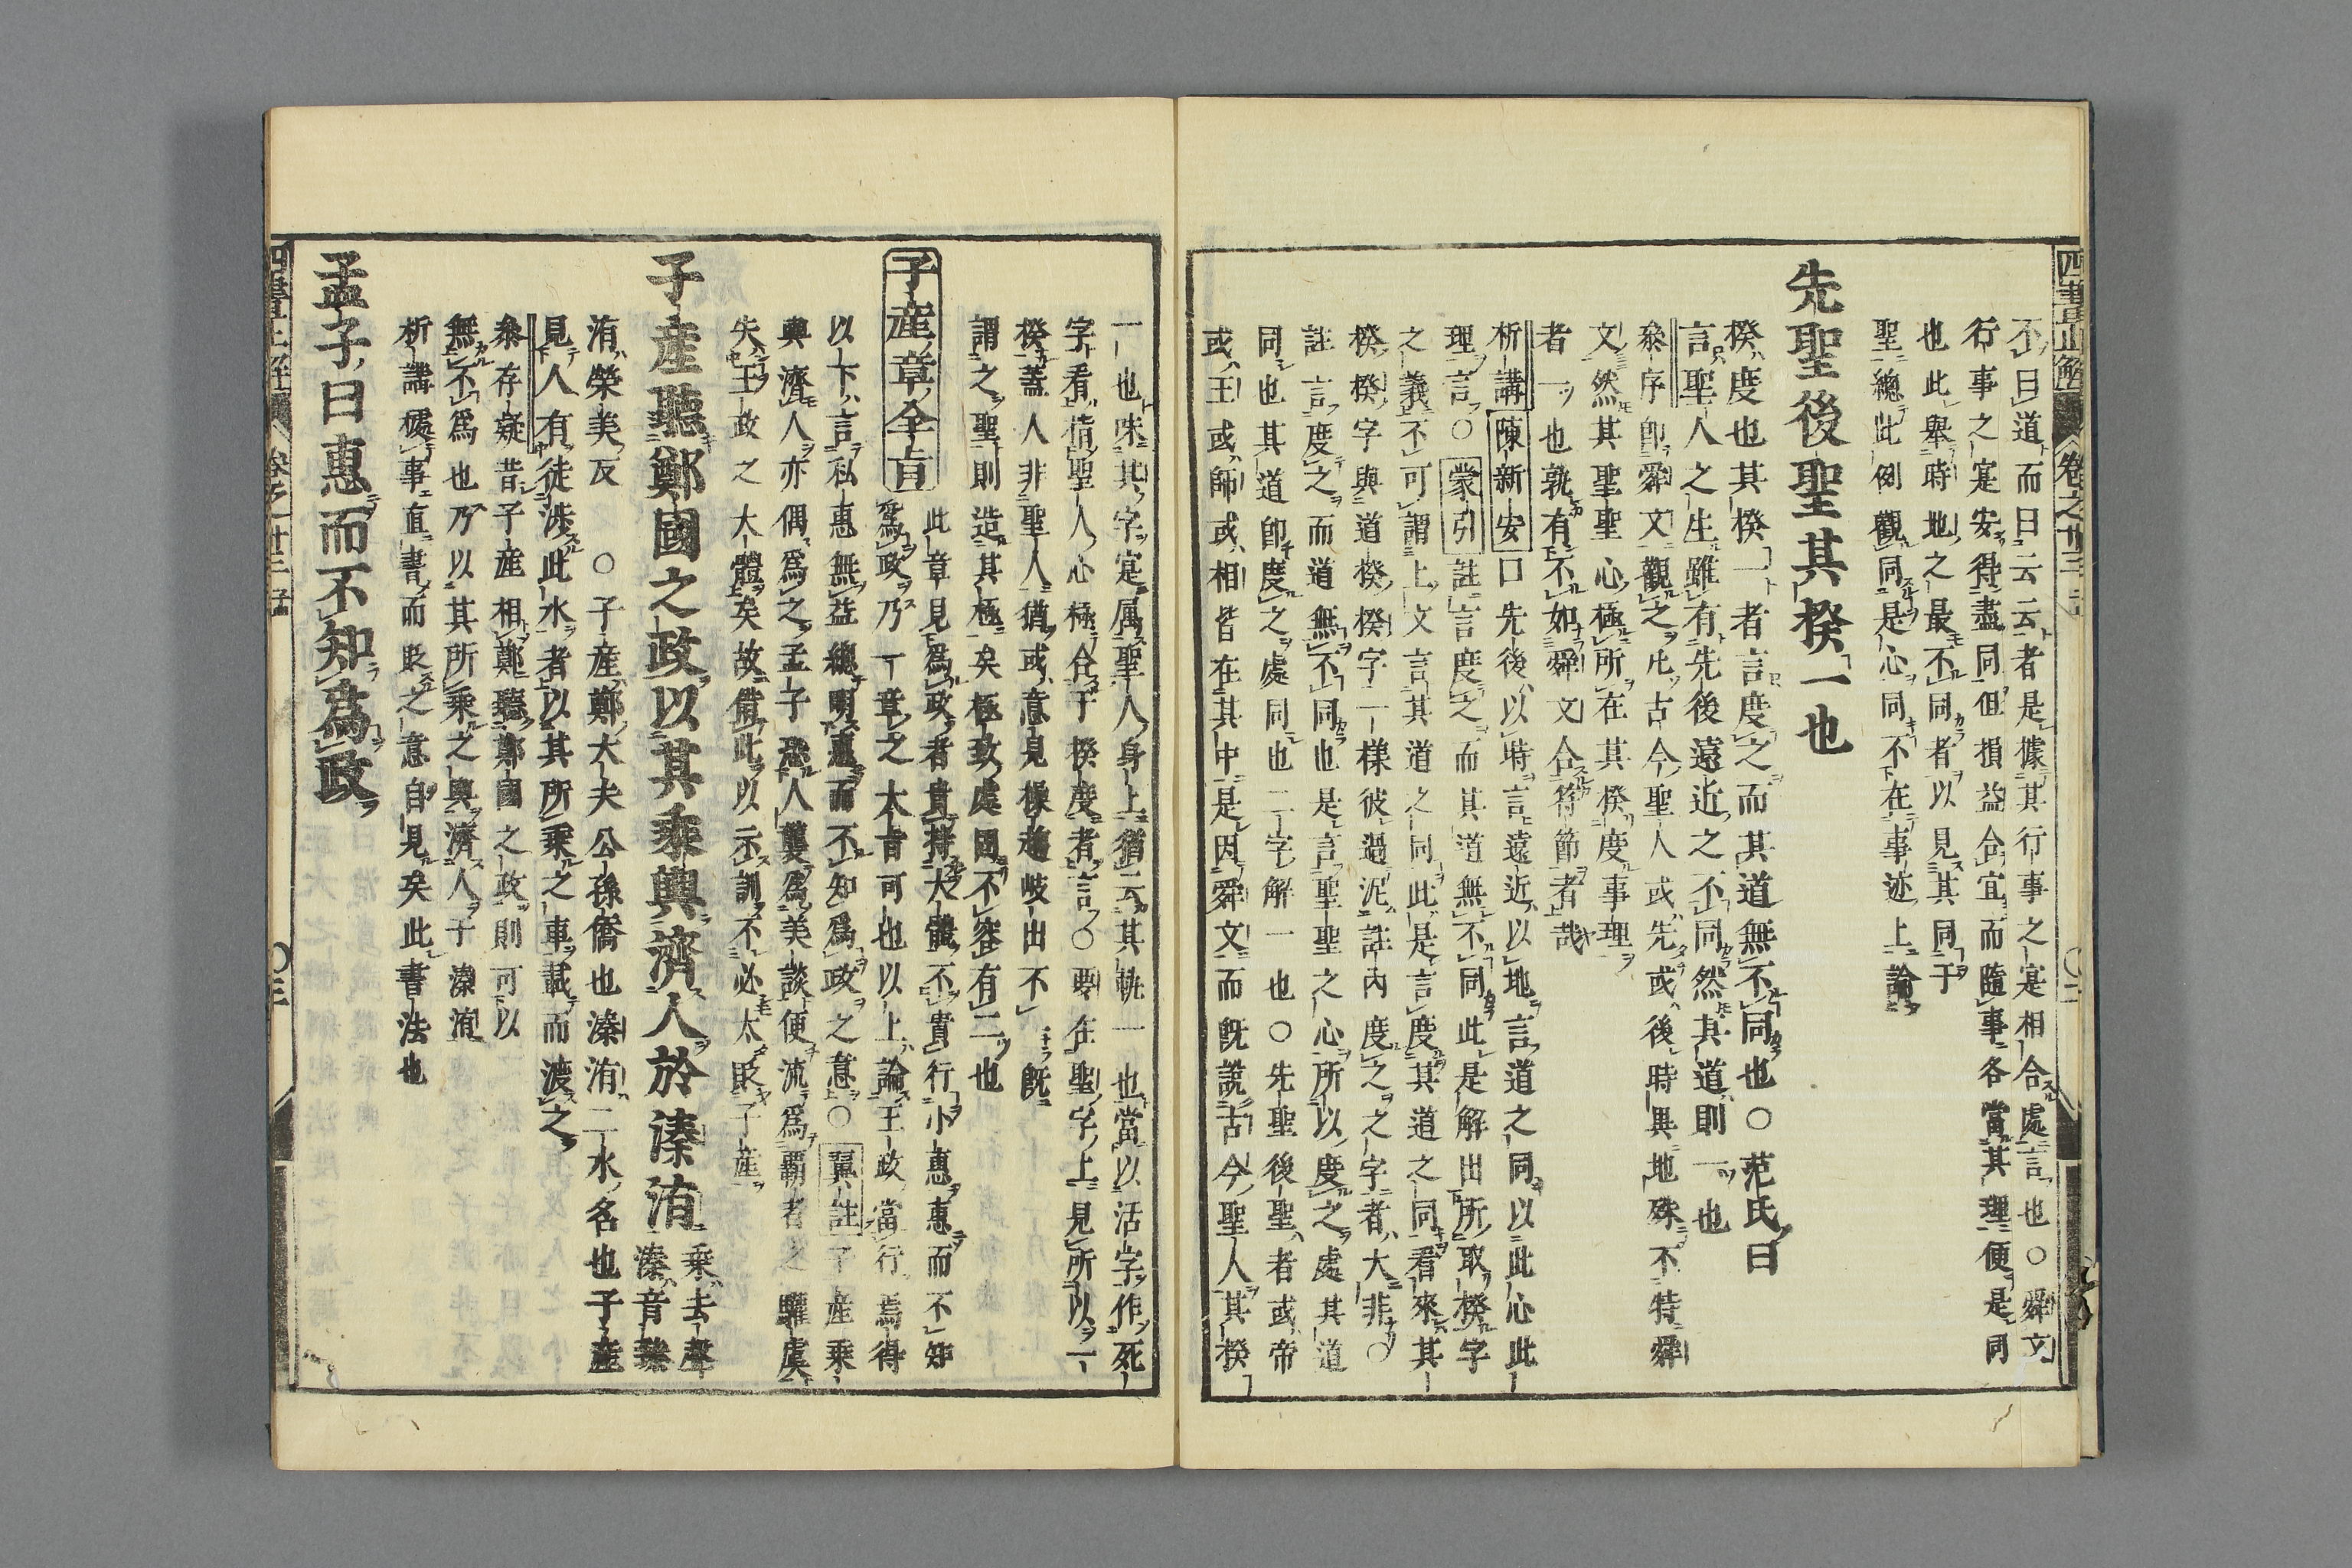 四書正解 卷之廿三
不曰道而曰云云者是據其行事之寔相合處言也○舜文
行事之寔安得盡同但損益合宜而隨事各當其理便是同
也此舉時地之最不同者以見其同于
聖總此例觀同是心同不在事迹上論
先聖後聖其揆一也
揆度也其揆一者言度之而其道無不同也○范氏曰
言聖人之生雖有先後遠近之不同然其道則一也
叅序卽舜文觀之凢古今聖人或先或後時異地殊不特舜
文然其聖聖心極所在其揆度事理
者一也孰有不如舜文合符節者哉
析講陳新安口先後以時言遠近以地言道之同以此心此
理言○蒙引註言度之而其道無不同此是解出所取揆字
之義不可謂上文言其道之同此是言度其道之同看來其
揆揆字與道揆揆字一樣彼過泥註內度之之字者大非○
註言度之而道無不同也是言聖聖之心所以度之處其道
同也其道卽度之處同也二字解一也○先聖後聖者或帝
或王或師或相皆在其中是因舜文而旣說古今聖人其揆
一也味其字寔属聖人身上猶云其軌一也當以活字作死
字看情聖人心極合于揆度者言○要在聖字上見所以一
揆蓋人非聖人猶或意見操趨岐出不旣
謂之聖則造其極矣極致處固不容有二也
子産章全旨 此章見爲政者貴持大體不貴行小惠惠而不知
爲政乃一章之大旨可也以上論王政當行焉得
以下言私惠無益總明惠而不知爲政之意○翼註子産乗
輿濟人亦偶爲之孟子恐人襲爲美談便流爲霸者之驩虞
失王政之大體矣故借此以示訓不必太貶子産
子産聽鄭國之政以其乗輿濟人於溱洧 乗去聲
溱音臻
洧榮美反 ○子産鄭大夫公孫僑也溱洧二水名也子産
見人有徒涉此水者以其所乗之車載而渡之
叅存疑昔子産相鄭聽鄭國之政則可以
無不爲也乃以其所乗之輿濟人于溱洧
析講攄事直書而貶之意自見矣此書法也
孟子曰惠而不知爲政